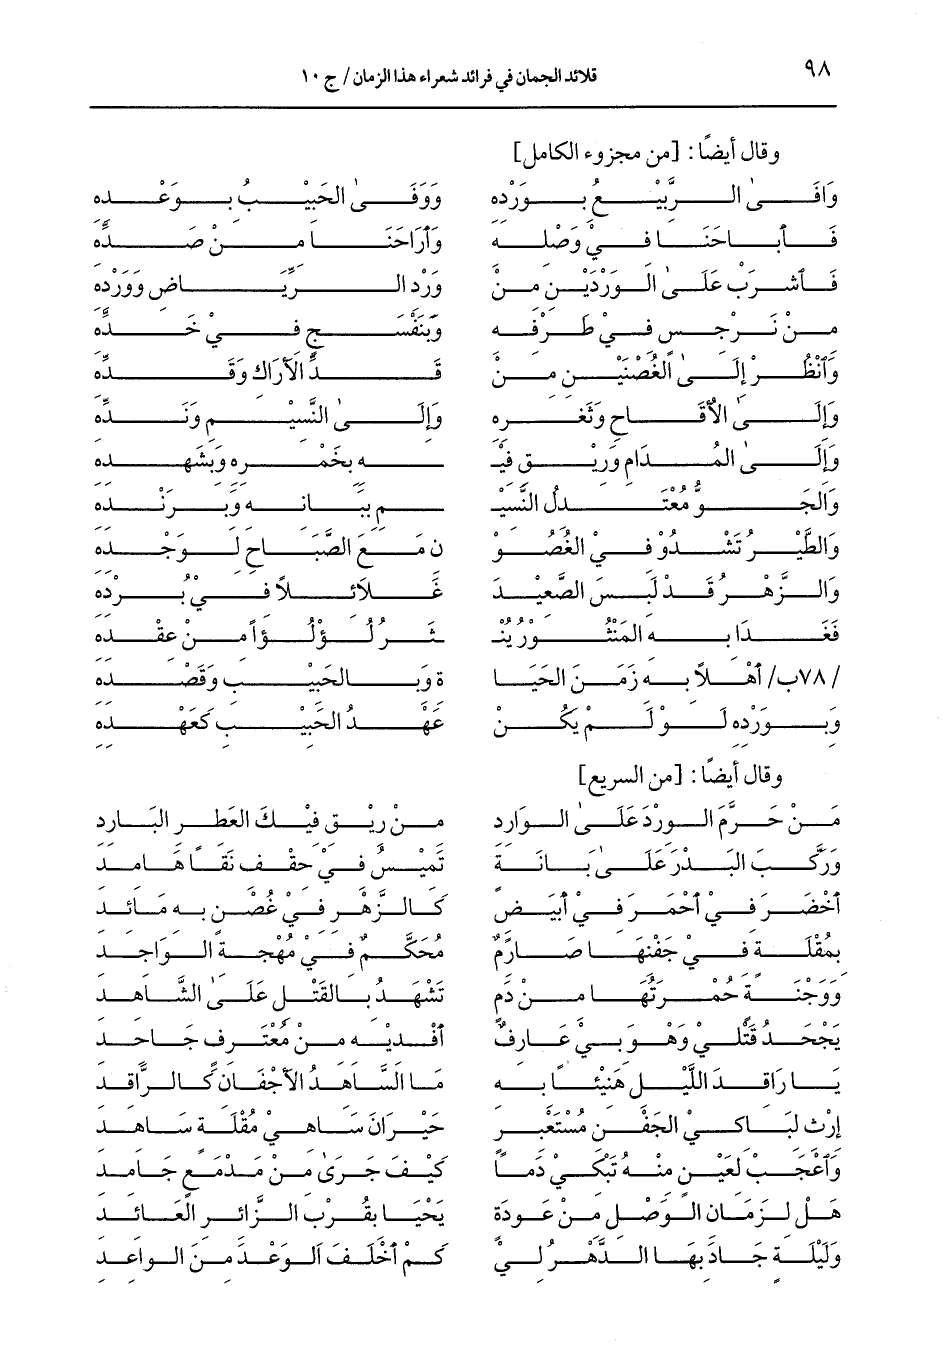 ٩٨
قلائد الجمان في فرائد شعراء هذا الزمان / ج ١٠
وقال أيضًا: [من مجزوء الكامل]
وَافَىٰ الرَّبِيْعُ بِوَرْدِهِ وَوَفَىٰ الحَبِيْبُ بِوَعْدِهِ
فَأَبَاحَنَا فِيْ وَصْلِهِ وَأَرَاحَنَا مِنْ صَدِّهِ
فَٱشْرَبْ عَلَىٰ الوَرْدَيْنِ مِنْ وَرْدِ الرِّيَاضِ وَوَرْدِهِ
مِنْ نَرْجِسٍ فِيْ طَرْفِهِ وَبَنَفْسَجٍ فِيْ خَدِّهِ
وَٱنْظُرْ إِلَىٰ الغُصْنَيْنِ مِنْ قَدِّ الأَرَاكِ وَقَدِّهِ
وَإِلَىٰ الأَقَاحِ وَثَغْرِهِ وَإِلَىٰ النَّسِيْمِ وَنَدِّهِ
وَإِلَىٰ المُدَامِ وَرِيْقِ فِيْـ ـهِ بِخَمْرِهِ وَبِشَهْدِهِ
وَالجَوُّ مُعْتَدِلُ النَّسِيْـ ـمِ بِبَانِهِ وَبِرَنْدِهِ
وَالطَّيْرُ تَشْدُوْ فِيْ الغُصُوْ نِ مَعَ الصَّبَاحِ لِوَجْدِهِ
وَالزَّهْرُ قَدْ لَبِسَ الصَّعِيْدَ غَلَائِلاً فِيْ بُرْدِهِ
فَغَدَا بِهِ المَنْثُوْرُ يَنْـ ـثُرُ لُؤْلُؤاً مِنْ عِقْدِهِ
/٧٨ب/ أَهْلاً بِهِ زَمَنَ الحَيَا ةِ وَبِالحَبِيْبِ وَقَصْدِهِ
وَبِوَرْدِهِ لَوْ لَمْ يَكُنْ عَهْدُ الحَبِيْبِ كَعَهْدِهِ
وقال أيضًا: [من السريع]
مَنْ حَرَّمَ الوِرْدَ عَلَىٰ الوَارِدِ مِنْ رِيْقِ فِيْكَ العَطِرِ البَارِدِ
وَرَكَّبَ البَدْرَ عَلَىٰ بَانَةٍ تَمِيْسُ فِيْ حِقْفِ نَقًا هَامِدِ
أَخْضَرَ فِيْ أَحْمَرَ فِيْ أَبْيَضٍ كَالزَّهْرِ فِيْ غُصْنٍ بِهِ مَائِدِ
بِمُقْلَةٍ فِيْ جَفْنِهَا صَارِمٌ مُحَكَّمٌ فِيْ مُهْجَةِ الوَاجِدِ
وَوَجْنَةٍ حُمْرَتُهَا مِنْ دَمِ تَشْهَدُ بِالقَتْلِ عَلَىٰ الشَّاهِدِ
يَجْحَدُ قَتْلِيْ وَهْوَ بِيْ عَارِفٌ أَفْدِيْهِ مِنْ مُعْتَرِفٍ جَاحِدِ
يَا رَاقِدَ اللَّيْلِ هَنِيْئًا بِهِ مَا السَّاهِدُ الأَجْفَانِ كَالرَّاقِدِ
إِرْثِ لِبَاكِيْ الجَفْنِ مُسْتَعْبِرٍ حَيْرَانَ سَاهِيْ مُقْلَةٍ سَاهِدِ
وَٱعْجَبْ لِعَيْنٍ مِنْهُ تَبْكِيْ دَمًا كَيْفَ جَرَىٰ مِنْ مَدْمَعٍ جَامِدِ
هَلْ لِزَمَانِ الوَصْلِ مِنْ عَوْدَةٍ يَحْيَا بِقُرْبِ الزَّائِرِ العَائِدِ
وَلَيْلَةٍ جَادَ بِهَا الدَّهْرُ لِيْ كَمْ أَخْلَفَ الوَعْدَ مِنَ الواعِدِ